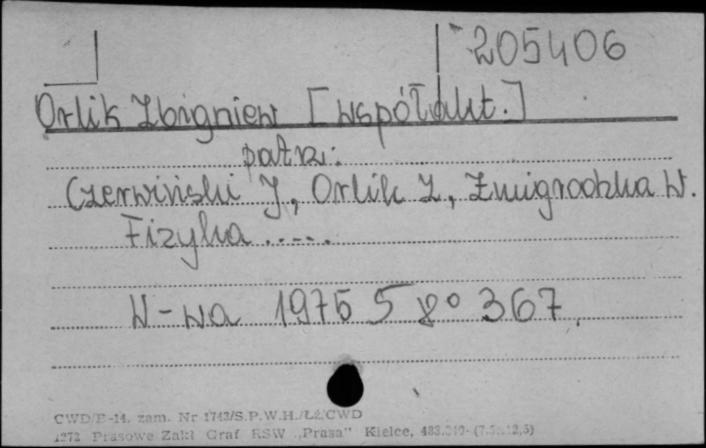 205406
Orlik Zbigniew [współaut.]
patrz:
Czerwiński J, Orlik Z, Żmigrodzka W.
Fizyka .....
W-wa 1975 S 8° 367.
CWD/E-14. zam. Nr 1743/S.P.W.H./Ł2/CWD
1272 Prasowe Zakł Graf RSW „Prasa” Kielce,